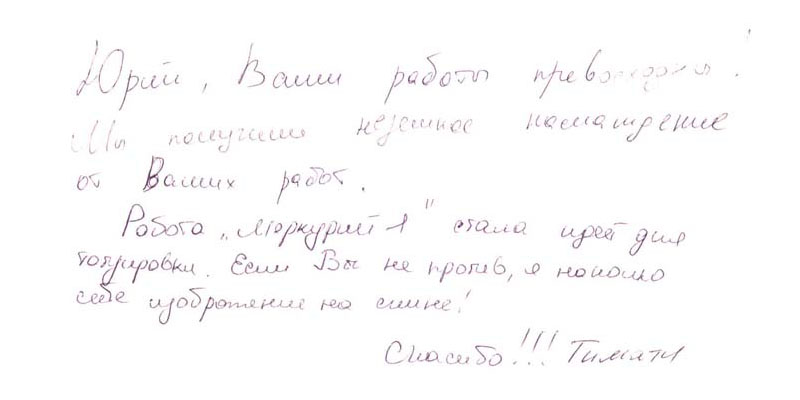 Юрий, Ваши работы превосходны!
Мы получили неземное наслаждение
от Ваших работ.
Работа „Меркурий 1" стала идеей для
татуировки. Если Вы не против, я наколю
себе изображение на спине!
Спасибо!!! Тимати